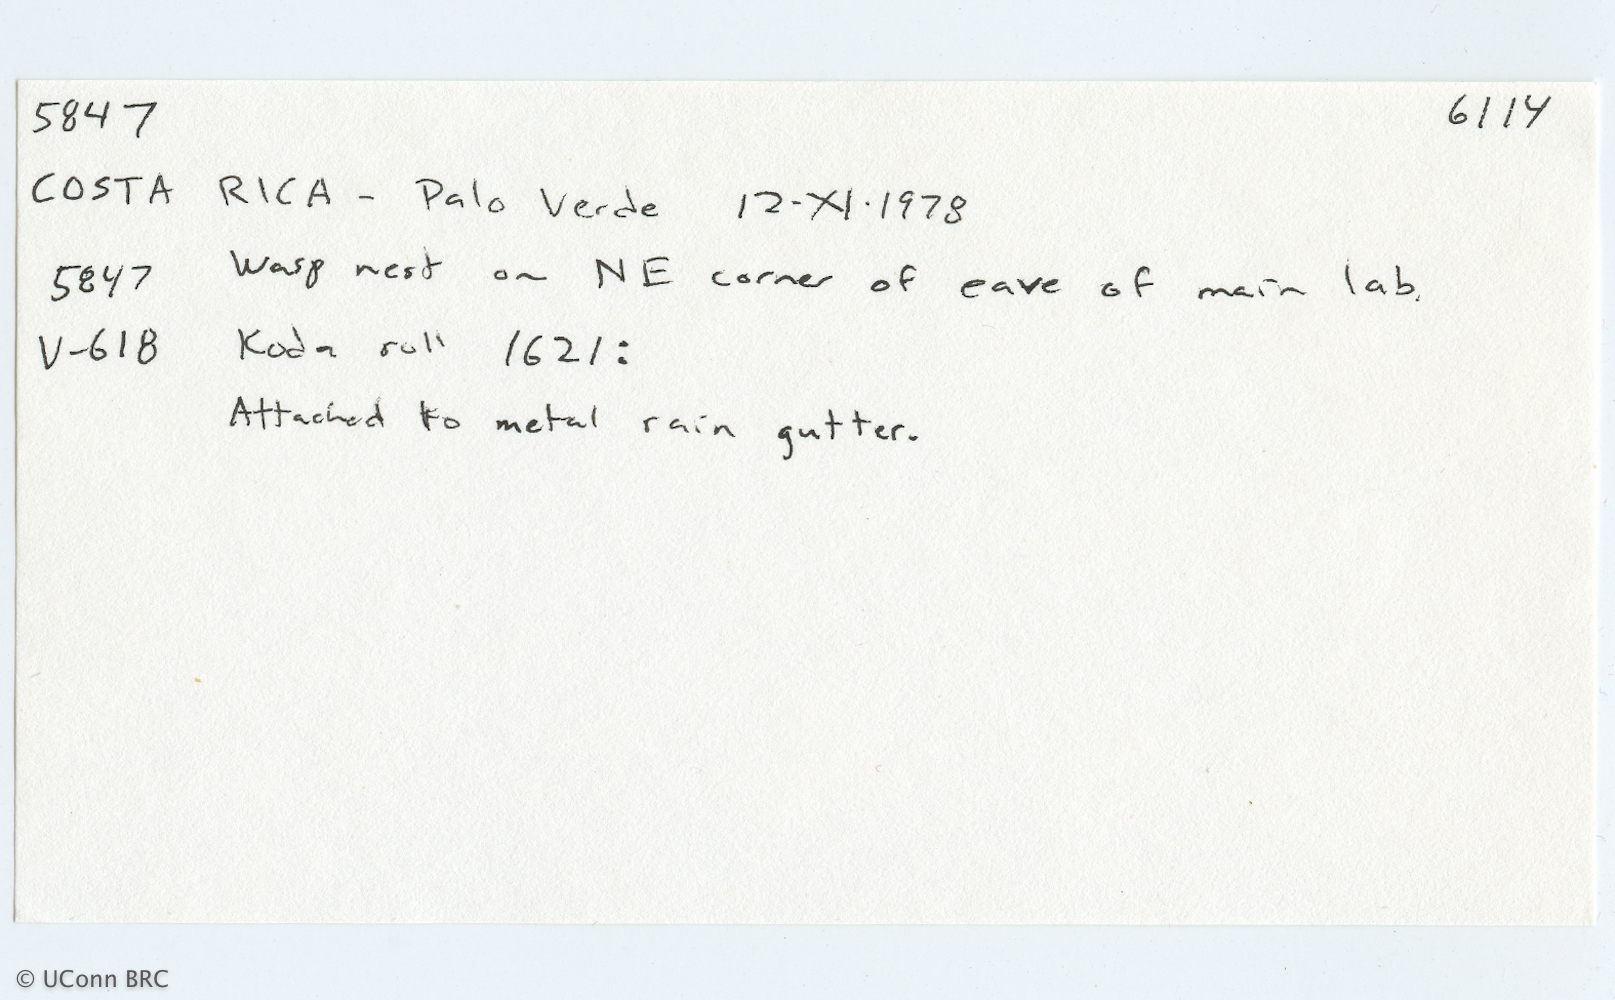 5847 6114
COSTA RICA - Palo Verde 12-XI-1978
5847 Wasp nest on NE corner of eave of main lab.
V-618 Koda roll 1621:
Attached to metal rain gutter.
© UConn BRC